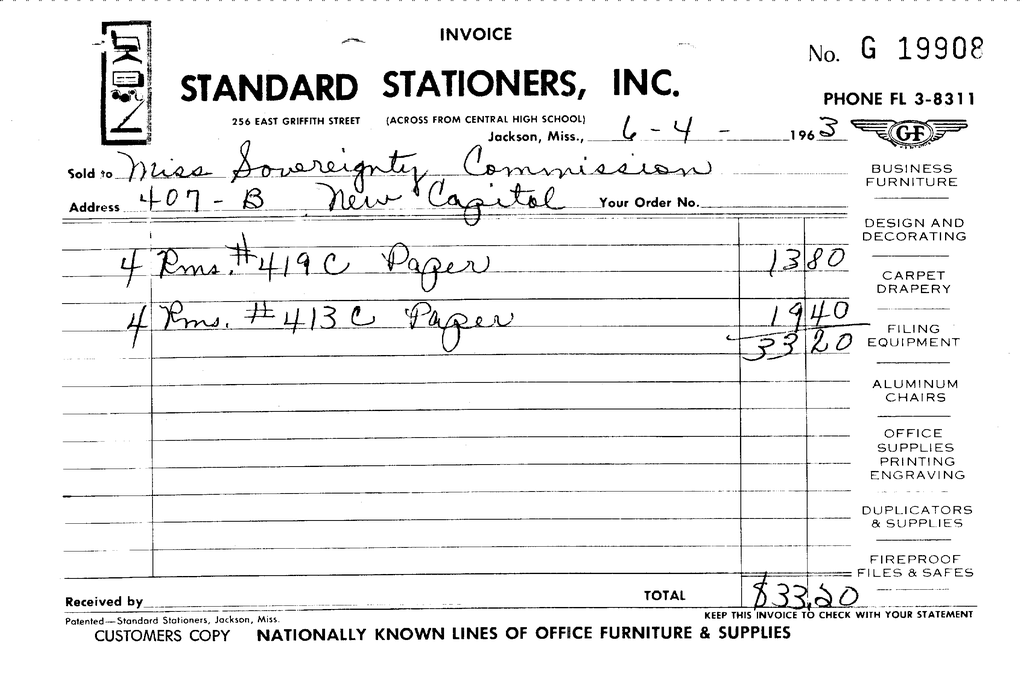 INVOICE
No. G 19908
STANDARD STATIONERS, INC.
PHONE FL 3-8311
256 EAST GRIFFITH STREET (ACROSS FROM CENTRAL HIGH SCHOOL)
Jackson, Miss., 6 - 4 - 1963
GF
Sold to Miss Sovereignty Commission
Address 407 - B New Capitol Your Order No.
4 Rms. #419 C Paper 13 80
4 Rms. #413 C Paper 19 40
33 20
BUSINESS
FURNITURE
DESIGN AND
DECORATING
CARPET
DRAPERY
FILING
EQUIPMENT
ALUMINUM
CHAIRS
OFFICE
SUPPLIES
PRINTING
ENGRAVING
DUPLICATORS
& SUPPLIES
FIREPROOF
FILES & SAFES
Received by TOTAL $33.20
Patented—Standard Stationers, Jackson, Miss. KEEP THIS INVOICE TO CHECK WITH YOUR STATEMENT
CUSTOMERS COPY NATIONALLY KNOWN LINES OF OFFICE FURNITURE & SUPPLIES